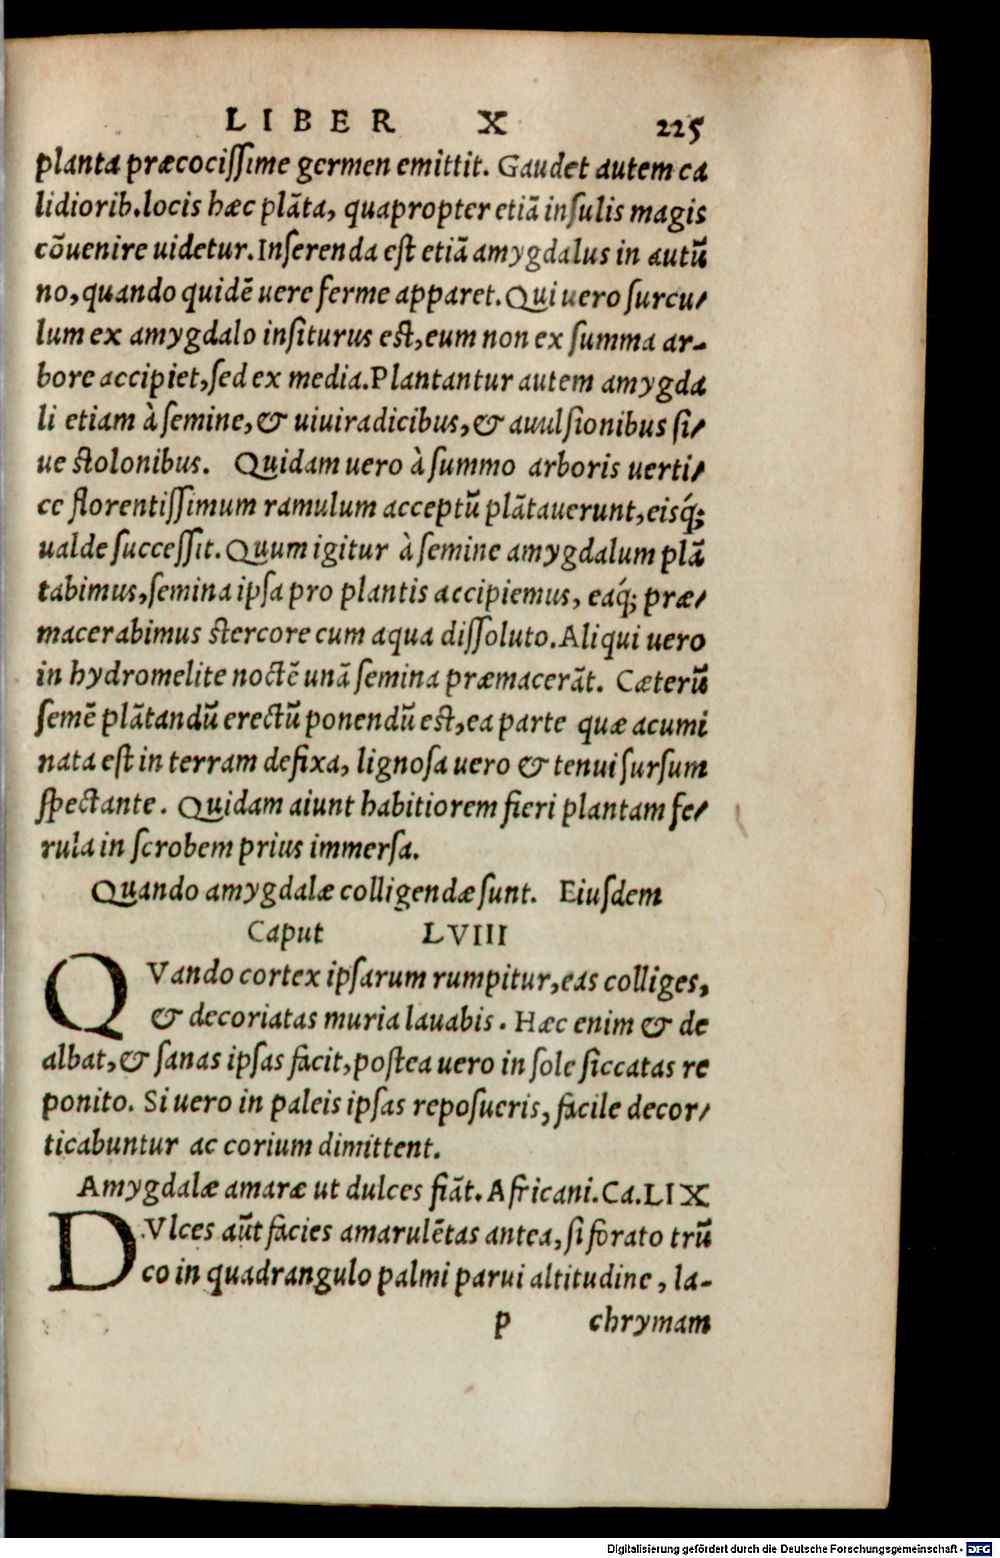 LIBER X 225
planta præcociſſime germen emittit. Gaudet autem ca
lidiorib. locis hæc plãta, quapropter etiã inſulis magis
cõuenire uidetur. Inſerenda eſt etiã amygdalus in autũ
no, quando quidẽ uere ferme apparet. Qui uero ſurcu-
lum ex amygdalo inſiturus eſt, eum non ex ſumma ar-
bore accipiet, ſed ex media. Plantantur autem amygda
li etiam à ſemine, & uiuiradicibus, & auulſionibus ſi-
ue ſtolonibus. Quidam uero à ſummo arboris uerti-
ce florentiſſimum ramulum acceptũ plãtauerunt, eisq́;
ualde ſucceſſit. Quum igitur à ſemine amygdalum plã
tabimus, ſemina ipſa pro plantis accipiemus, eaq́; præ-
macerabimus ſtercore cum aqua diſſoluto. Aliqui uero
in hydromelite noctẽ unã ſemina præmacerãt. Cæterũ
ſemẽ plãtandũ erectũ ponendũ eſt, ea parte quæ acumi
nata eſt in terram defixa, lignoſa uero & tenui ſurſum
ſpectante. Quidam aiunt habitiorem fieri plantam fe-
rula in ſcrobem prius immerſa.
Quando amygdalæ colligendæ ſunt. Eiuſdem
Caput LVIII
QVando cortex ipſarum rumpitur, eas colliges,
& decoriatas muria lauabis. Hæc enim & de
albat, & ſanas ipſas facit, poſtea uero in ſole ſiccatas re
ponito. Si uero in paleis ipſas repoſueris, facile decor-
ticabuntur ac corium dimittent.
Amygdalæ amaræ ut dulces fiãt. Africani. Ca. LIX
DVlces aũt facies amarulẽtas antea, ſi forato trũ
co in quadrangulo palmi parui altitudine, la-
p chrymam
Digitalisierung gefördert durch die Deutsche Forschungsgemeinschaft - DFG